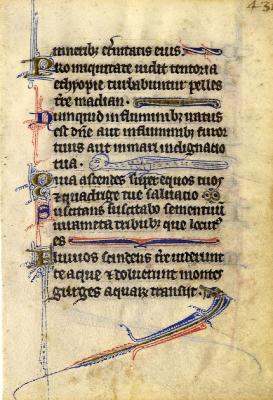 43
ineribȝ eternitatis eius
Pro iniquitate uidit tentoria
ethyopie turbabuntur pelles
tr̄e madian.
Numquid in fluminibȝ iratus
es dn̄e aut in fluminibȝ furor
tuus aut in mari indignatio
tua.
Qui a ascendes super equos tuos
⁊ quadrige tue saluatio
Suscitans suscitabis arcum tuum
iuramenta tribubȝ que locutus
es
Fluuios scindens tr̄e uiderunt
te aque ⁊ doluerunt montes
gurges aquarum transiit.